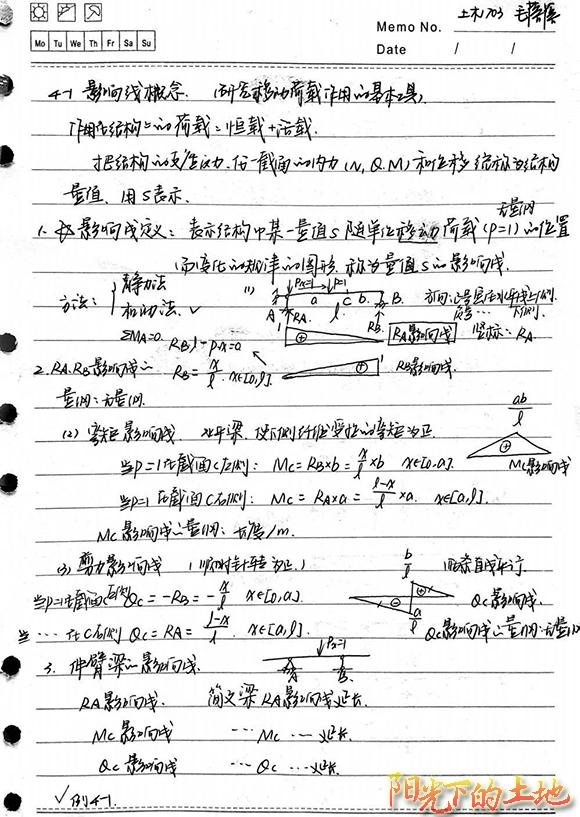 土木1703
Memo No.
Mo Tu We Th Fr Sa Su
Date / /
4-1 影响线概念. (研究移动荷载作用的基本工具)
作用在结构上的荷载=恒载+活载.
把结构的支座反力、任一截面的内力(N, Q, M)和位移统称为结构
量值. 用S表示.
无量纲
1. 影响线定义: 表示结构中某一量值S随单位移动荷载(P=1)的位置
而变化的规律的图形. 称为量值S的影响线.
方法: 静力法
机动法. ✓
(1)
Px=1 P=1
A a C b B.
RA. l RB
ΣMA=0. RB·l-P·x=0
⊕ RA影响线 竖标: RA
2. RA.RB影响线
RB=x/l. x∈[0,l].
1 RB影响线.
量纲: 无量纲.
ab/l
(2) 弯矩影响线. 水平梁, 使下侧纤维受拉的弯矩为正.
⊕
Mc影响线
当P=1在截面C左侧: Mc=RB×b=x/l×b x∈[0,a].
当P=1在截面C右侧: Mc=RA×a=l-x/l×a. x∈[a,l].
Mc影响线量纲: 长度/m.
(3) 剪力影响线 (顺时针转为正.)
b/l
两条直线平行
当P=1在截面C左侧 Qc=-RB=-x/l x∈[0,a].
⊖ ⊕ Qc影响线.
a/l
当 … 在C右侧 Qc=RA=l-x/l. x∈[a,l].
Qc影响线量纲: 无量纲
3. 伸臂梁影响线.
Px=1
A B
RA影响线. 简支梁RA影响线延长.
Mc影响线 … Mc … 延长.
Qc影响线 … Qc … 延长.
✓ 例4-1.
阳光下的土地